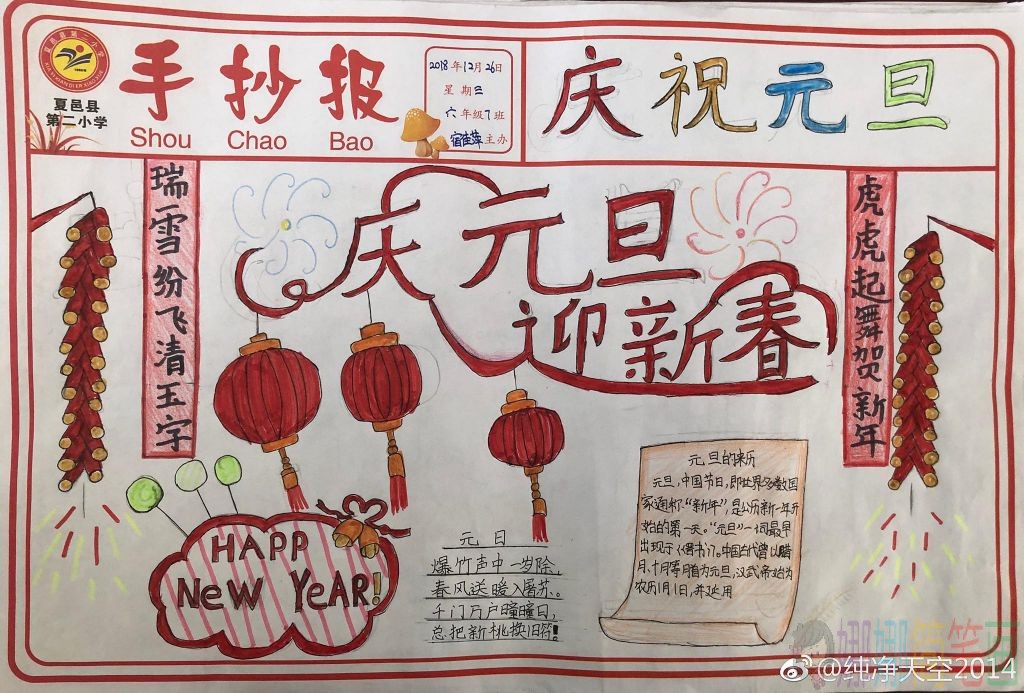 夏邑县第二小学
夏邑县
第二小学
手抄报
Shou Chao Bao
2018年12月26日
星期三
六年级7班
宿佳萍主办
庆祝元旦
瑞雪纷飞清玉字
虎虎起舞贺新年
庆元旦
迎新春
HAPP
New YeAR!
元日
爆竹声中一岁除,
春风送暖入屠苏。
千门万户曈曈日,
总把新桃换旧符!
元旦的来历
元旦,中国节日,即世界多数国
家通称“新年”,是公历新一年开
始的第一天。“元旦”一词最早
出现于《晋书》。中国古代曾以腊
月、十月等月首为元旦,汉武帝始为
农历1月1日,并延用
娜娜简笔画
@纯净天空2014